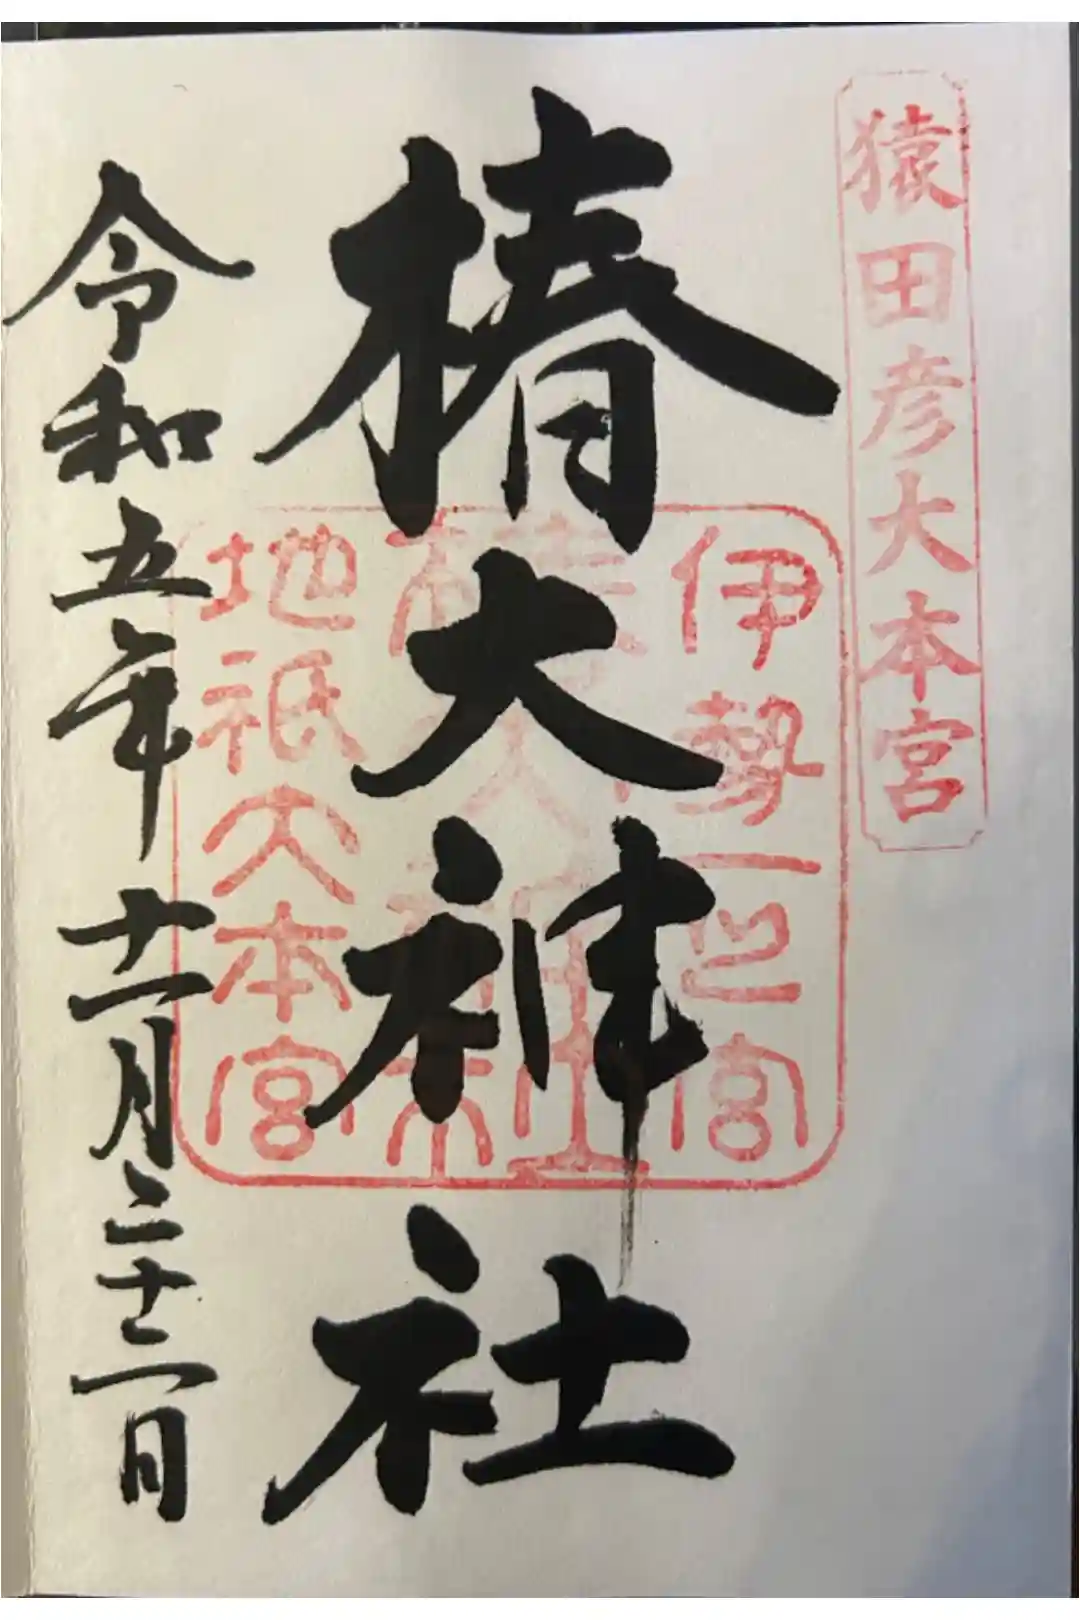 猿田彦大本宮
椿大神社
伊勢一之宮
椿大神社
地祇大本宮
令和五年十一月二十二日